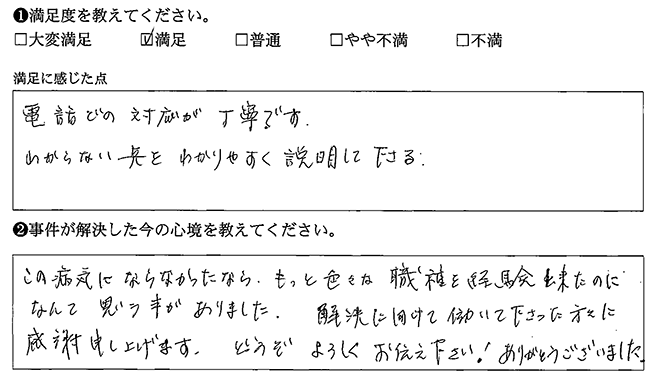 ❶満足度を教えてください。
□大変満足 ☑満足 □普通 □やや不満 □不満
満足に感じた点
電話での対応が丁寧です.
わからない点をわかりやすく説明して下さる.
❷事件が解決した今の心境を教えてください。
この病気にならなかったなら、もっと色々な職種を経験出来たのに
なんて思う事がありました. 解決に向けて働いて下さった方々に
感謝申し上げます. どうぞよろしくお伝え下さい!ありがとうございました.